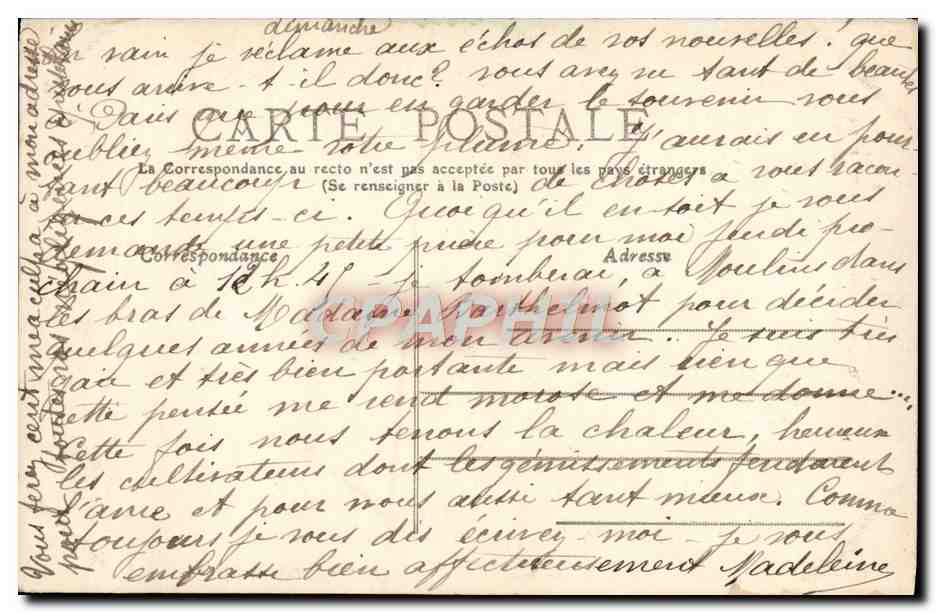 dimanche
En vain je réclame aux échos de vos nouvelles ! que
vous arrive-t-il donc? vous avez vu tant de beautés
à Paris que pour en garder le souvenir vous
oubliez même votre plume. J'aurais eu pour-
CARTE POSTALE
La Correspondance au recto n'est pas acceptée par tous les pays étrangers
(Se renseigner à la Poste)
tant beaucoup de choses à vous racon-
ter ces temps-ci. Quoiqu'il en soit je vous
demande une petite prière pour moi Jeudi pro-
Correspondance
Adresse
chain à 12h.45 - je tomberai à Moulins dans
les bras de Madame Barthelmot pour décider
quelques années de mon avenir. Je suis très
gaie et très bien portante mais rien que
cette pensée me rend morose et me donne....
Cette fois nous tenons la chaleur, heureux
les cultivateurs dont les gémissements fendaient
l'âme et pour nous aussi tant mieux. Comme
toujours je vous dis écrivez-moi - je vous
embrasse bien affectueusement Madeleine
Vous ferez cent mea culpa à mon adresse
pour toutes vos
CPAPHIL